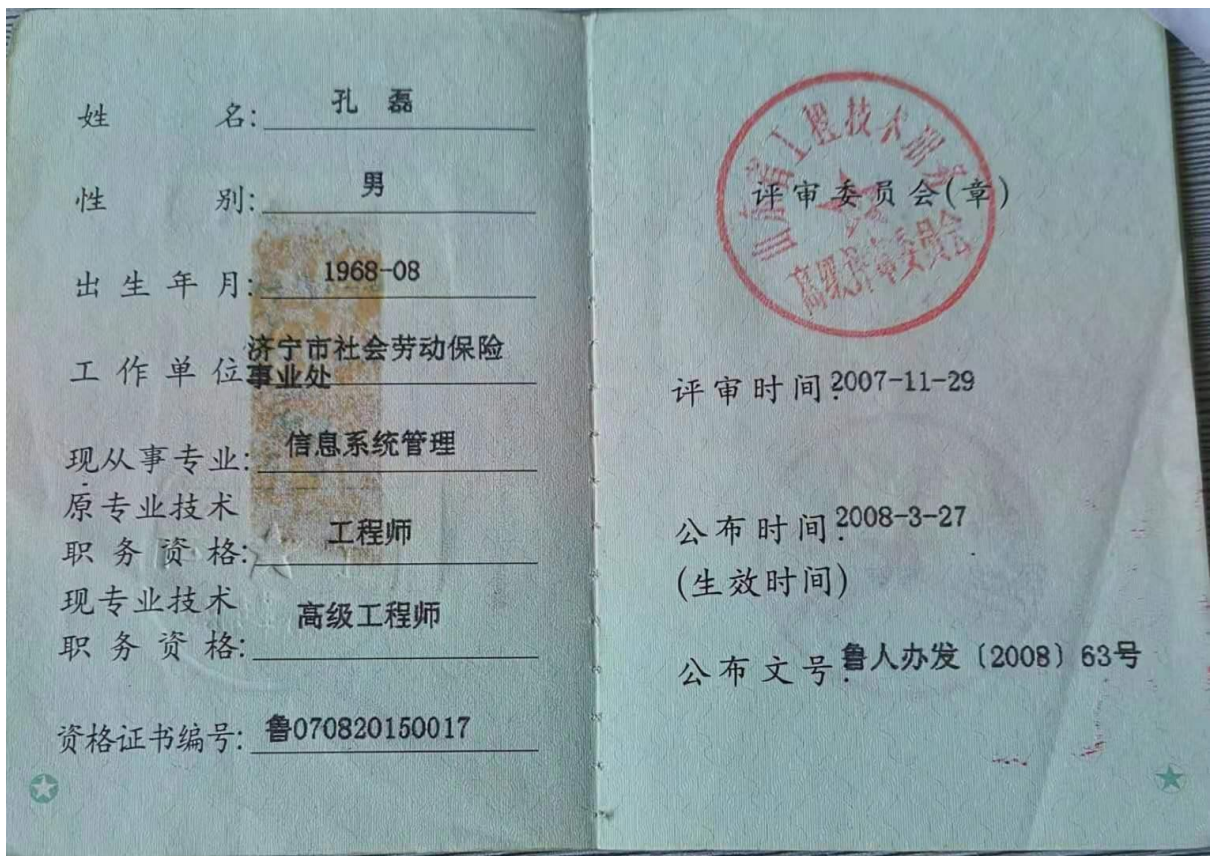 姓名: 孔磊
性别: 男
出生年月: 1968-08
工作单位 济宁市社会劳动保险
事业处
现从事专业: 信息系统管理
原专业技术
职务资格: 工程师
现专业技术
职务资格: 高级工程师
资格证书编号: 鲁070820150017
山东省工程技术职务
评审委员会(章)
高级评审委员会
评审时间: 2007-11-29
公布时间: 2008-3-27
(生效时间)
公布文号: 鲁人办发〔2008〕63号